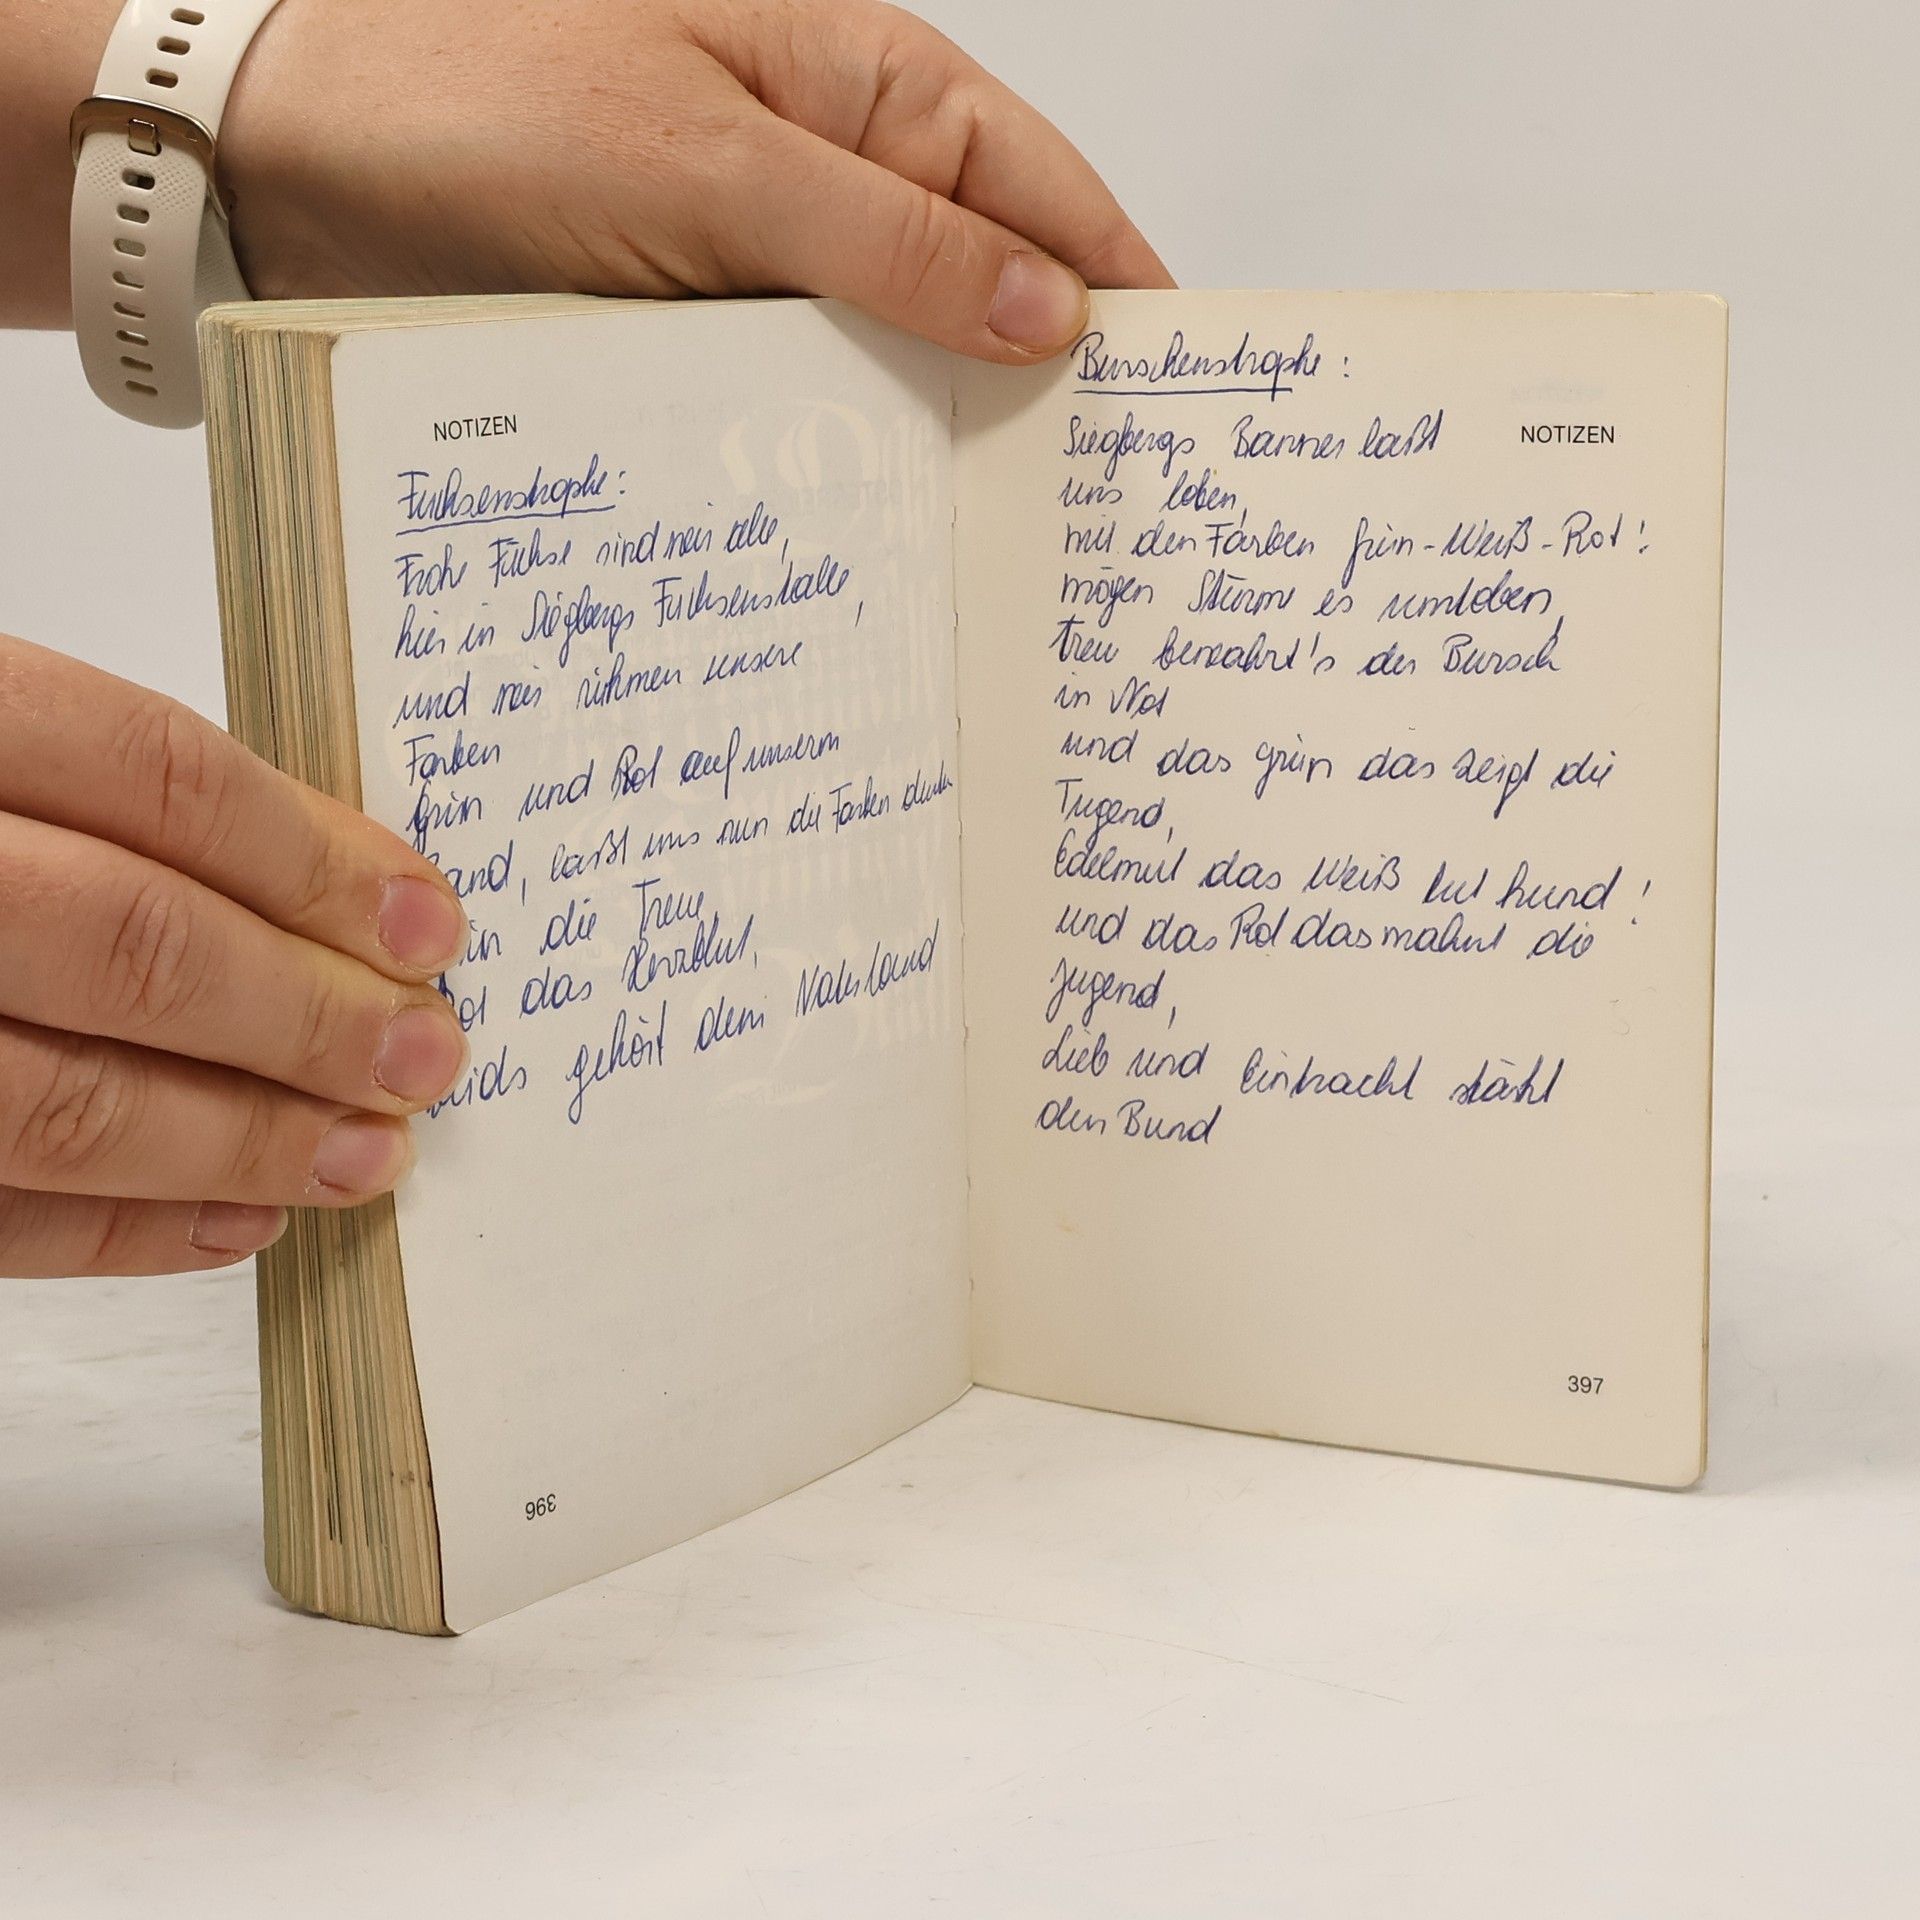 NOTIZEN
Fuchsenstrophe:
Frohe Füchse sind wir alle,
hier in Siegbergs Fuchsenstalle,
und wir rühmen unsere
Farben
Grün und Rot auf unserm
Band, laßt uns nun die Farben deuten
die Treue
das Herzblut,
gehört dem Vaterland
396
Burschenstrophe:
Siegbergs Banner laßt
NOTIZEN
uns loben,
mit den Farben Grün-Weiß-Rot!
mögen Stürme es umtoben,
treu bewahrt's der Bursch
in Not
und das Grün das zeigt die
Tugend,
Edelmut das Weiß tut kund!
und das Rot das mahnt die
Jugend,
Lieb und Eintracht stärkt
den Bund
397